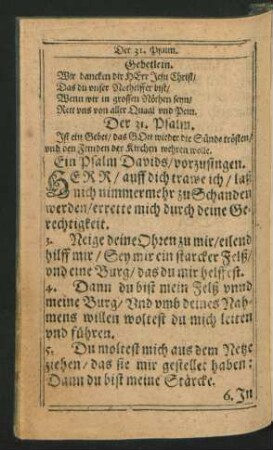 Der 31. Psalm.
Gebetlein.
Wir dancken dir HErr Jesu Christ/
Das du unser Nothelffer bist/
Wenn wir in grossen Nöthen seyn/
Rett uns von aller Quaal und Pein.
Der 31. Psalm.
Ist ein Gebet/ das GOtt wieder die Sünde trösten/
und den Feinden der Kirchen wehren wolle.
Ein Psalm Davids/ vorzusingen.
HERR/ auff dich trawe ich/ laß
mich nimmermehr zu Schanden
werden/ errette mich durch deine Ge-
rechtigkeit.
3. Neige deine Ohren zu mir/ eilend
hilff mir/ Sey mir ein starcker Felß/
und eine Burg/ das du mir helffest.
4. Dann du bist mein Felß vnnd
meine Burg/ Vnd vmb deines Nah-
mens willen woltest du mich leiten
vnd führen.
5. Du woltest mich aus dem Netze
ziehen/ das sie mir gestellet haben:
Dann du bist meine Stärcke.
6. In